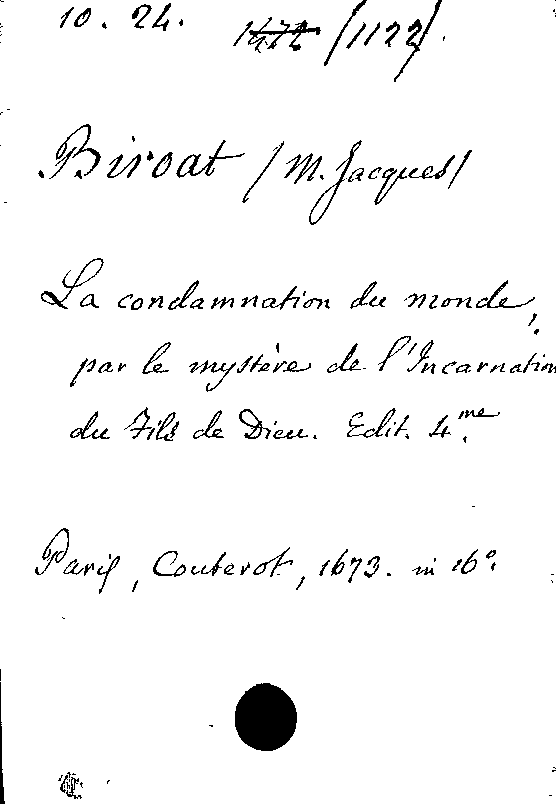 10. 24.
1472 /1122/.
Biroat /M. Jacques/
La condamnation du monde,
par le mystère de l'Incarnation
du Fils de Dieu. Edit. 4.me
Paris, Couterot, 1673. in 16°.